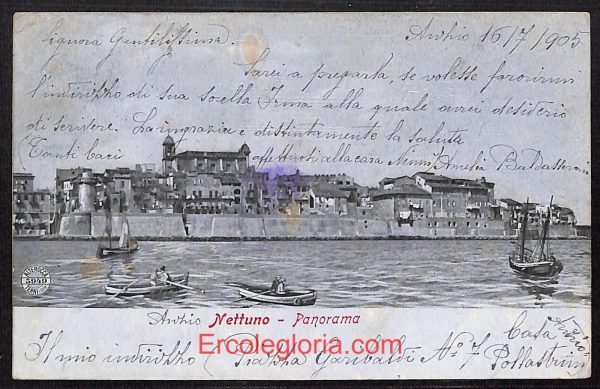 Signora Gentilissima.
Anzio 16/7/905
Sarei a pregarla, se volesse favorirmi
l'indirizzo di sua sorella Irma alla quale avrei desiderio
di scrivere. La ringrazio e distintamente la saluta
(Tanti baci affettuosi alla cara Nenni) Amelia Baldassarri
Anzio Nettuno - Panorama
Ercolegloria.com
Il mio indirizzo (Piazza Garibaldi No 7 Casa
Pollastrini